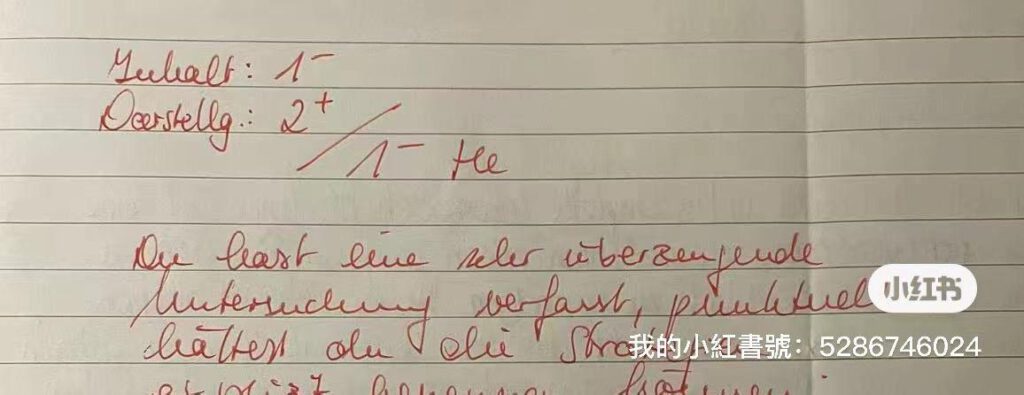 Inhalt: 1-
Darstellg.: 2+
1- He
Du hast eine sehr überzeugende
Untersuchung verfasst, punktuell
小红书
hättest du die
我的小紅書號：5286746024
genauer